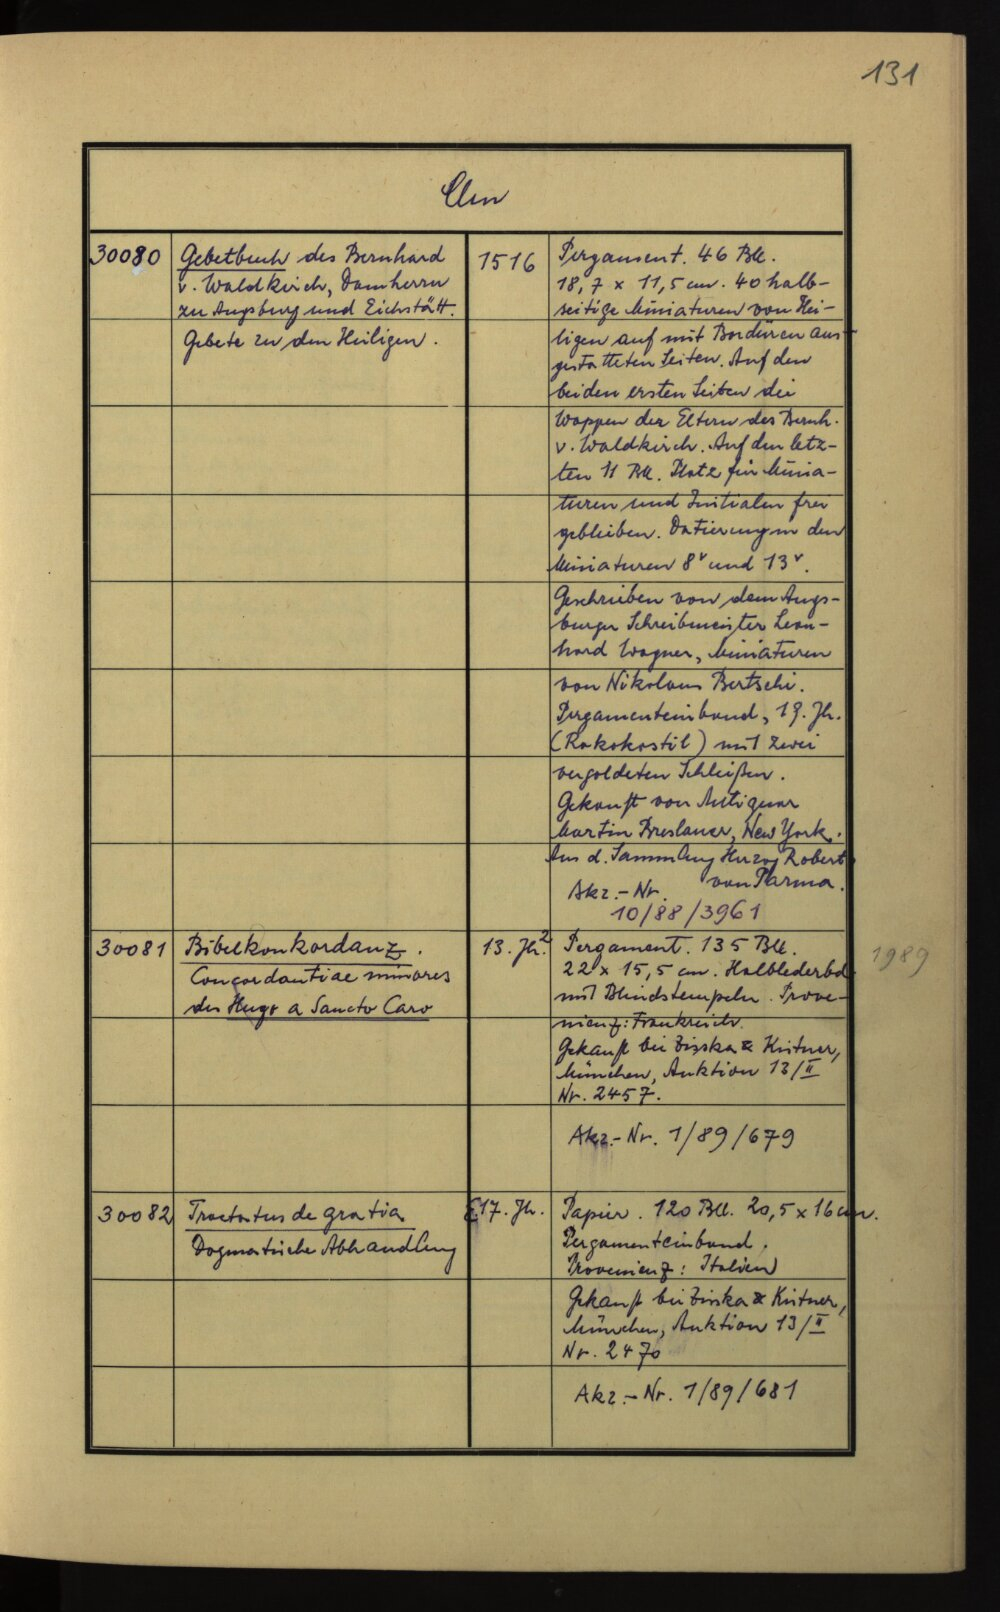 131
Clm
30080
Gebetbuch des Bernhard
v. Waldkirch, Domherrn
zu Augsburg und Eichstätt.
Gebete zu den Heiligen.
1516
Pergament. 46 Bll.
18,7 x 11,5 cm. 40 halb-
seitige Miniaturen von Hei-
ligen auf mit Bordüren aus-
gestatteten Seiten. Auf den
beiden ersten Seiten die
Wappen der Eltern des Bernh.
v. Waldkirch. Auf den letz-
ten 11 Bll. Platz für Minia-
turen und Initialen frei
geblieben. Datierung in den
Miniaturen 8v und 13v.
Geschrieben von dem Augs-
burger Schreibmeister Leon-
hard Wagner, Miniaturen
von Nikolaus Bertschi.
Pergamenteinband, 19. Jh.
(Rokokostil) mit zwei
vergoldeten Schließen.
Gekauft von Antiquar
Martin Breslauer, New York.
Aus d. Sammlung Herzog Robert
von Parma.
Akz.-Nr.
10/88/3961
30081
Bibelkonkordanz.
Concordantiae minores
des Hugo a Sancto Caro
13. Jh.2
Pergament. 135 Bll.
22 x 15,5 cm. Halblederbd
mit Blindstempeln. Prove-
nienz: Frankreich.
Gekauft bei Zisska & Kistner,
München, Auktion 13/II
Nr. 2457.
Akz.-Nr. 1/89/679
1989
30082
Tractatus de gratia
Dogmatische Abhandlung
17. Jh.
Papier. 120 Bll. 20,5 x 16 cm.
Pergamenteinband.
Provenienz: Italien
Gekauft bei Zisska & Kistner,
München, Auktion 13/II
Nr. 2470
Akz.-Nr. 1/89/681